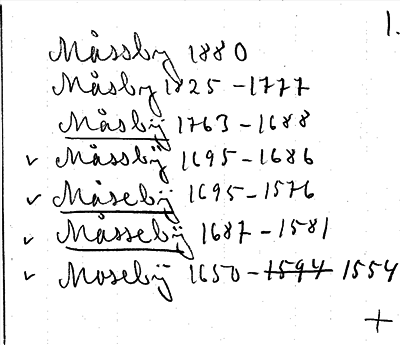 1.
Måssby 1880
Måsby 1825 - 1777
Måsbÿ 1763 - 1688
✓ Måssbÿ 1695 - 1686
✓ Måsebÿ 1695 - 1576
✓ Måssebÿ 1687 - 1581
✓ Mosebÿ 1650 - 1594 1554
+